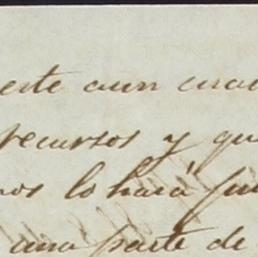 este aun cua
recursos y qu
nos lo hará
una parte de